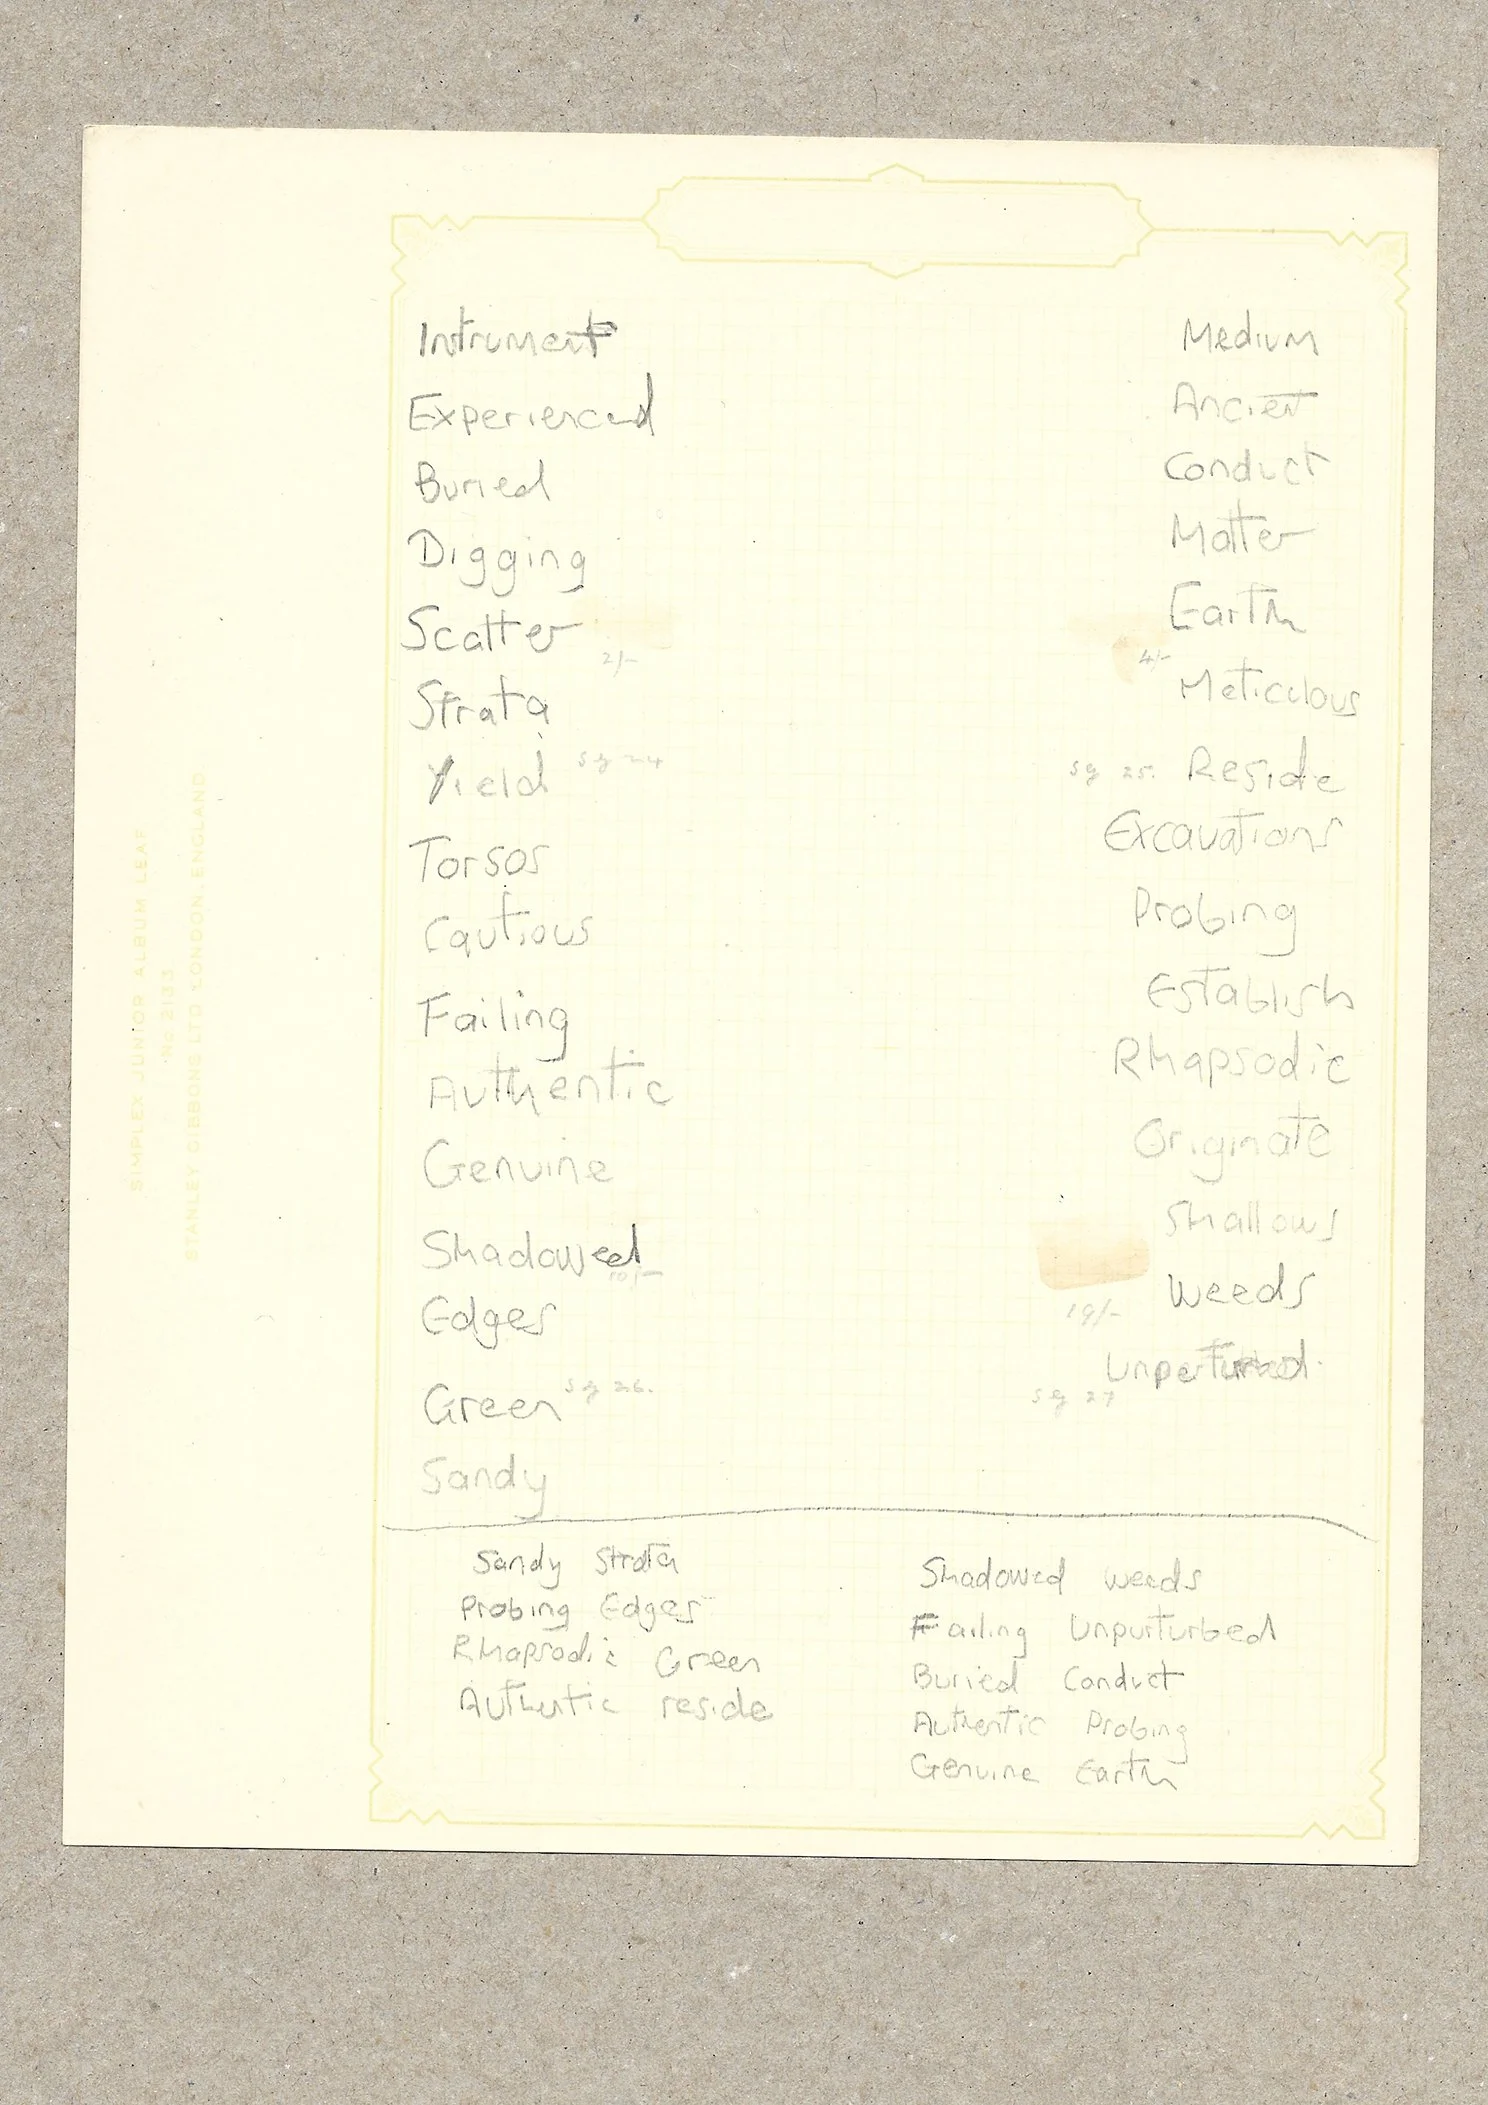 Intrument
Experienced
Buried
Digging
Scatter
2/-
Strata
Yield
sg 24
Torsos
Cautious
Failing
Authentic
Genuine
Shadowed
10/-
Edges
Green
sg 26.
Sandy
Medium
Ancient
Conduct
Matter
Earth
4/-
Meticulous
sg 25. Reside
Excavations
Probing
Establish
Rhapsodic
Originate
Shallows
Weeds
19/-
Unperturbed.
sg 27
Sandy Strata
Probing Edges
Rhapsodic Green
Authentic reside
Shadowed weeds
Failing Unpurturbed
Buried Conduct
Authentic Probing
Genuine Earth
SIMPLEX JUNIOR ALBUM LEAF
No 2133
STANLEY GIBBONS LTD LONDON, ENGLAND.